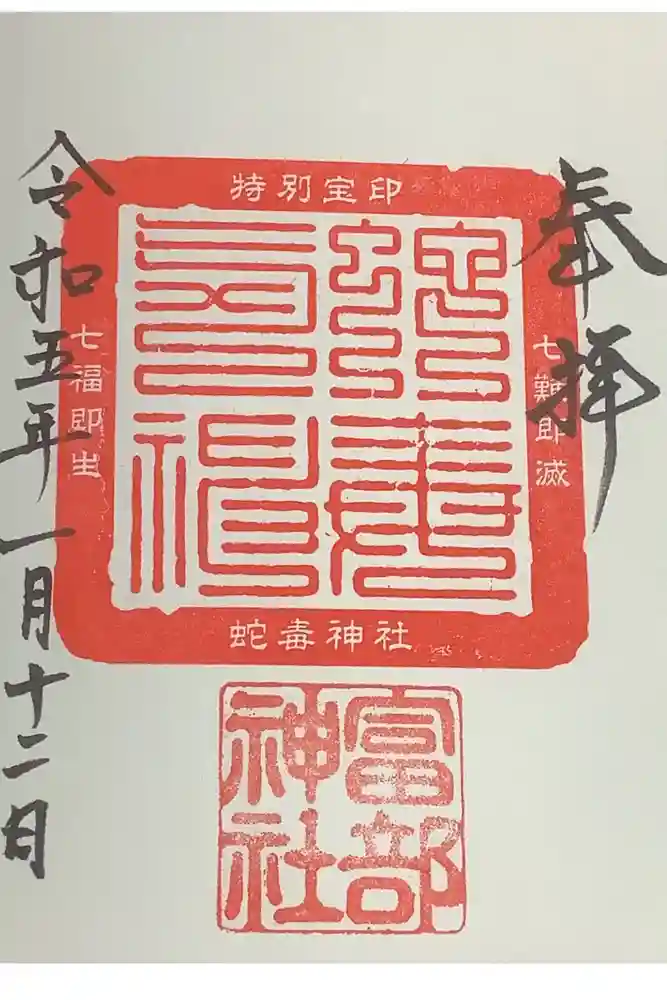 奉拝
特別宝印
七難即滅
蛇毒
气神
七福即生
蛇毒神社
富部
神社
令和五年一月十二日